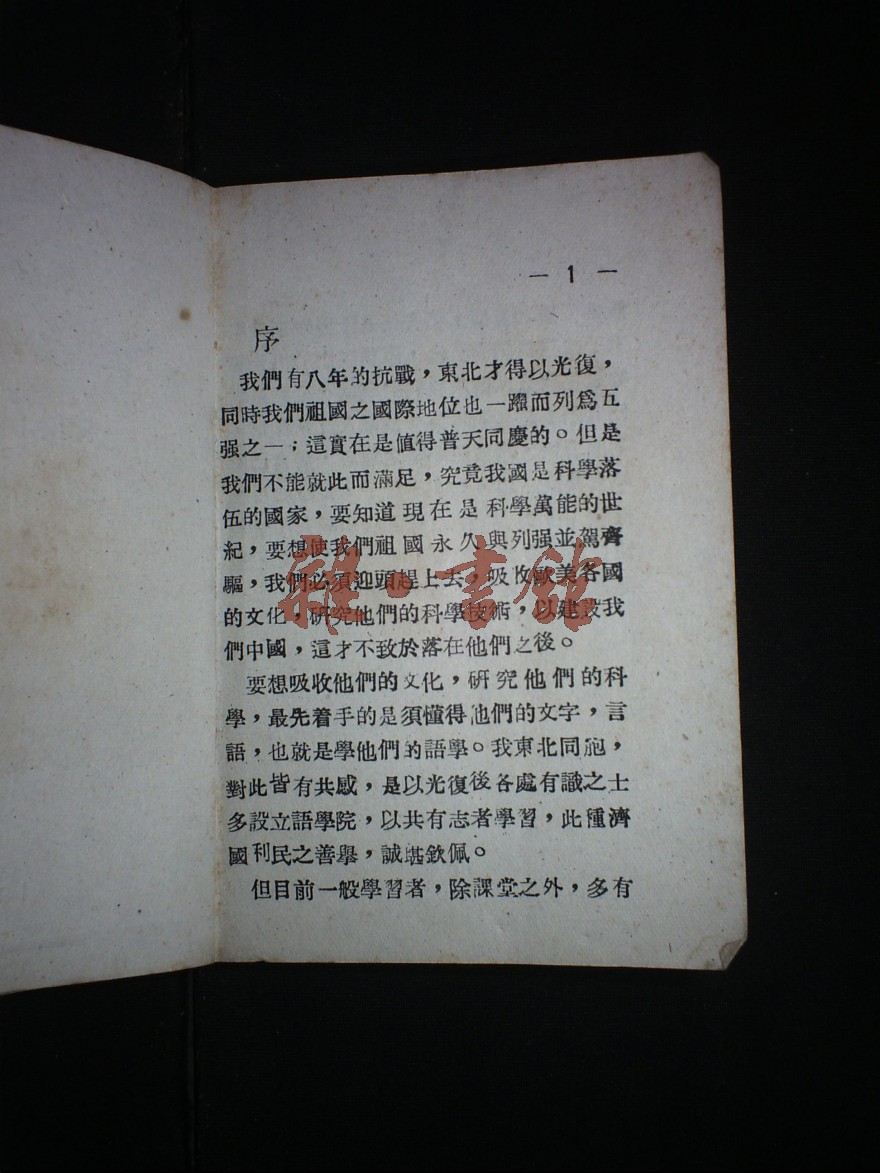 — 1 —
序
我們有八年的抗戰，東北才得以光復，
同時我們祖國之國際地位也一躍而列爲五
强之一；這實在是值得普天同慶的。但是
我們不能就此而滿足，究竟我國是科學落
伍的國家，要知道現在是科學萬能的世
紀，要想使我們祖國永久與列强並駕齊
驅，我們必須迎頭趕上去，吸收歐美各國
的文化，研究他們的科學技術，以建設我
們中國，這才不致於落在他們之後。
要想吸收他們的文化，研究他們的科
學，最先着手的是須懂得他們的文字，言
語，也就是學他們的語學。我東北同胞，
對此皆有共感，是以光復後各處有識之士
多設立語學院，以共有志者學習，此種濟
國利民之善擧，誠堪欽佩。
但目前一般學習者，除課堂之外，多有
雜·書館